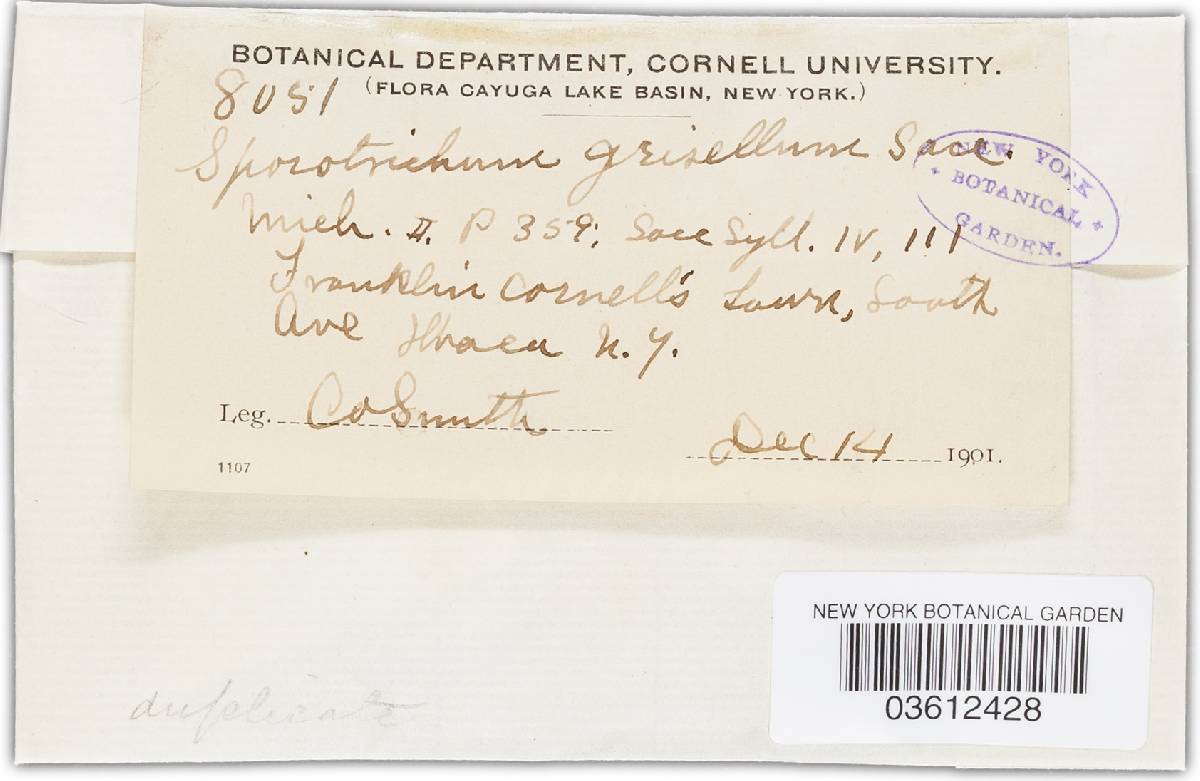 BOTANICAL DEPARTMENT, CORNELL UNIVERSITY.
(FLORA CAYUGA LAKE BASIN, NEW YORK.)
8051
Sporotrichum grisellum Sacc.
Mich. II. P 359; Sacc Syll. IV, 111
Franklin Cornell's Lawn, South
Ave Ithaca N.Y.
Leg. CO Smith
Dec 14 1901.
1107
NEW YORK
BOTANICAL
GARDEN.
duplicate
NEW YORK BOTANICAL GARDEN
03612428